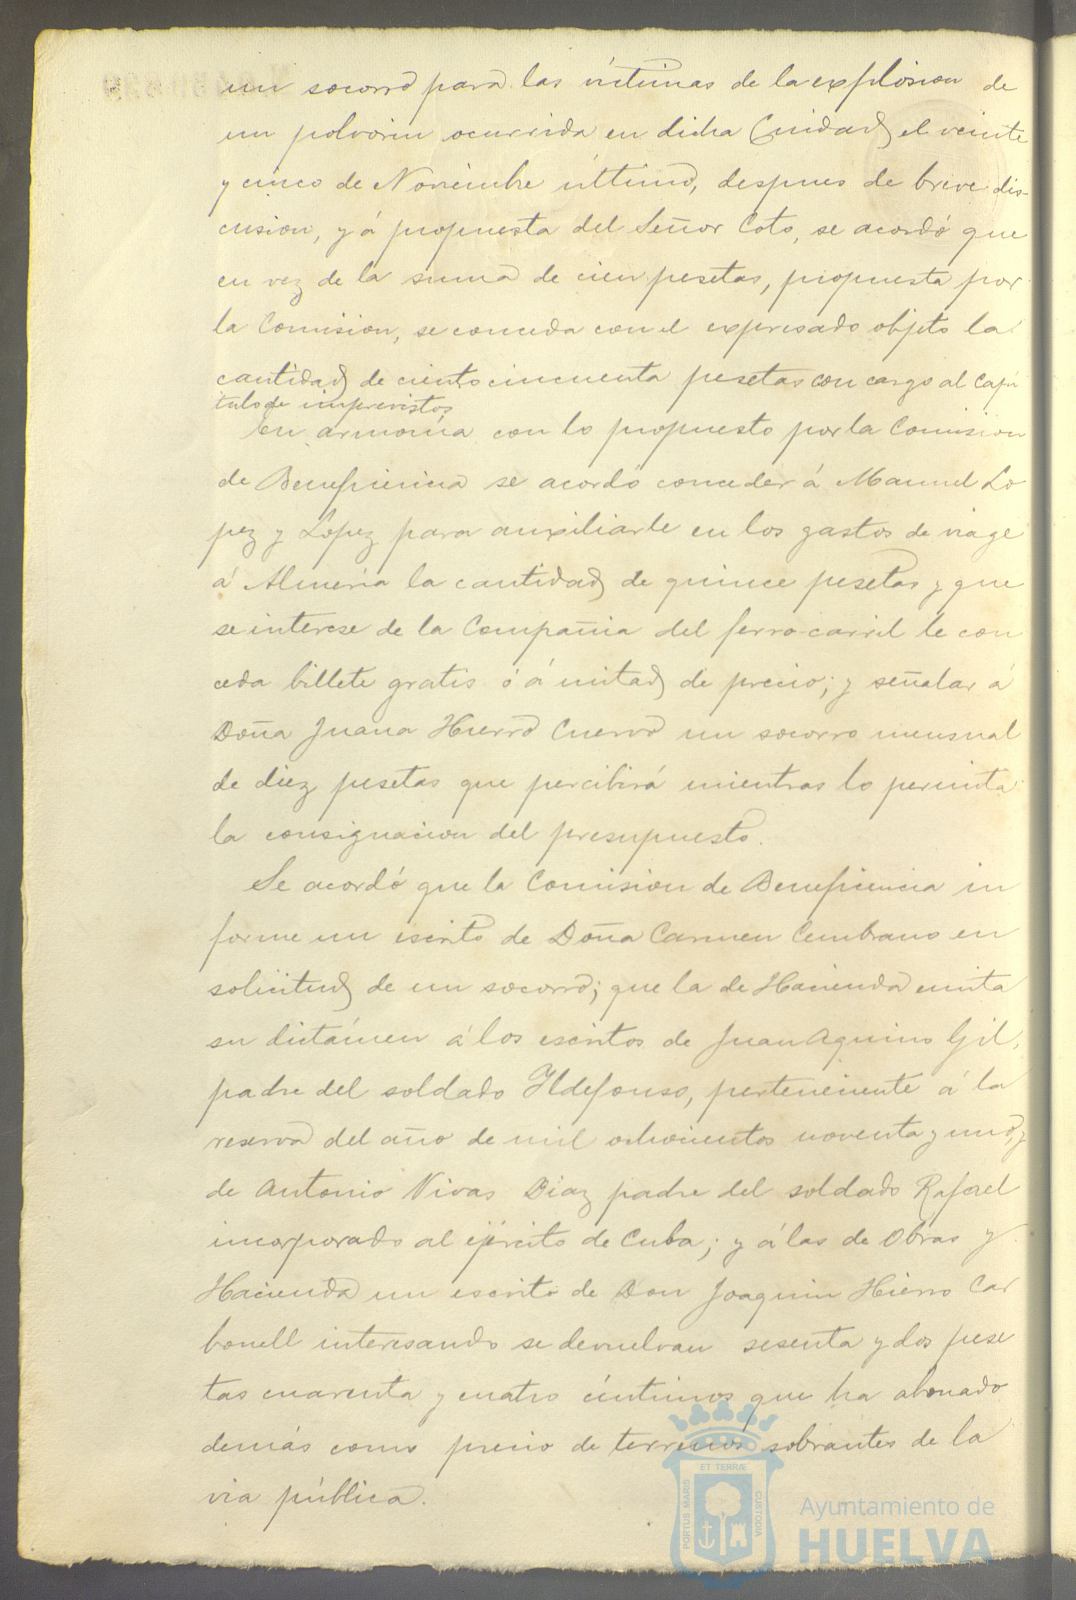 un socorro para las víctimas de la explosion de
un polvorin ocurrida en dicha Cuidad el veinte
y cinco de Noviembre último, despues de breve dis-
cusion, y á propuesta del Señor Coto, se acordó que
en vez de la suma de cien pesetas, propuesta por
la Comision, se conceda con el expresado objeto la
cantidad de ciento cincuenta pesetas con cargo al Capí
tulo de imprevistos
En armonía con lo propuesto por la Comision
de Beneficiencia se acordó conceder á Manuel Lo
pez y Lopez para auxiliarle en los gastos de viage
á Almeria la cantidad de quince pesetas y que
se interese de la Compañia del ferro-carril le con
ceda billete gratis ó á mitad de precio; y señalar á
Doña Juana Hierro Cuervo un socorro mensual
de diez pesetas que percibirá mientras lo permita
la consignacion del presupuesto.
Se acordó que la Comision de Beneficiencia in
forme un escrito de Doña Carmen Cembrano en
solicitud de un socorro; que la de Hacienda emita
su dictámen á los escritos de Juan Aquino Gil,
padre del soldado Ildefonso, perteneciente á la
reserva del año de mil ochocientos noventa y uno, y
de Antonio Vivas Diaz padre del soldado Rafael
incorporado al ejército de Cuba; y á las de Obras y
Hacienda un escrito de Don Joaquin Hierro Car
bonell interesando se devuelvan sesenta y dos pese
tas cuarenta y cuatro céntimos que ha abonado
demás como precio de terrenos sobrantes de la
via pública.
PORTUS MARIS ET TERRÆ CUSTODIA
Ayuntamiento de
HUELVA